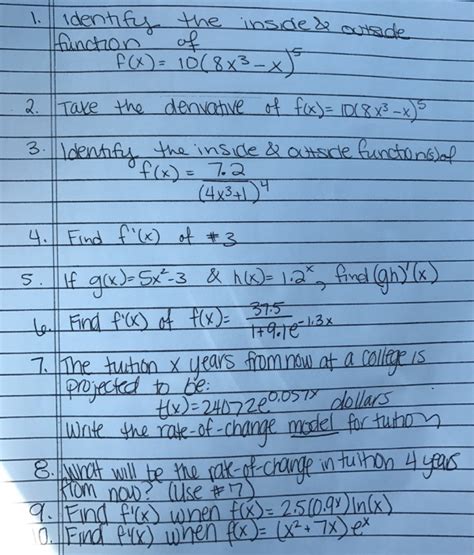 1. Identify the inside & outside
function of
f(x) = 10(8x³-x)⁵
2. Take the derivative of f(x)=10(8x³-x)⁵
3. Identify the inside & outside function(s) of
f(x) = 7.2/(4x³+1)⁴
4. Find f'(x) of #3
5. If g(x)=5x²-3 & h(x)=1.2ˣ, find (gh)'(x)
6. Find f'(x) of f(x)= 37.5/1+9.1e^-1.3x
7. The tuition x years from now at a college is
projected to be:
t(x)=24072e^0.057x dollars
Write the rate-of-change model for tuition
8. What will be the rate-of-change in tuition 4 years
from now? (Use #7)
9. Find f'(x) when f(x)=2.5(0.9ˣ)ln(x)
10. Find f'(x) when f(x)=(x²+7x)eˣ